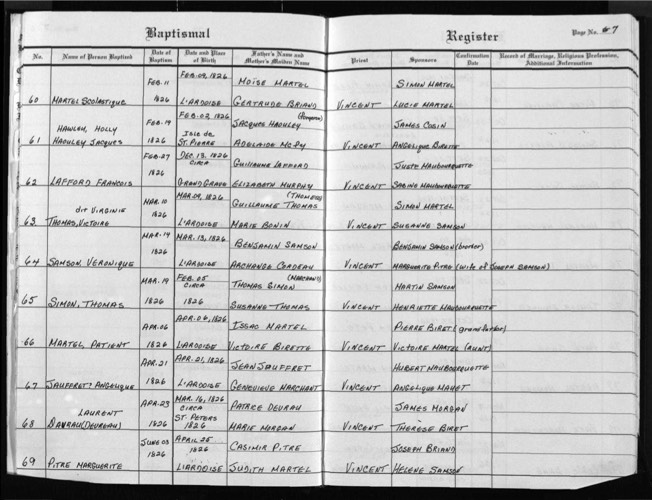 Baptismal Register Page No. 7
No. Name of Person Baptized Date of Baptism Date and Place of Birth Father's Name and Mother's Maiden Name Priest Sponsors Confirmation Date Record of Marriage, Religious Profession, Additional Information
FEB. 11 FEB. 09, 1826 MOÏSE MARTEL SIMON MARTEL
60 MARTEL SCOLASTIQUE 1826 L'ARDOISE GERTRUDE BRIAND VINCENT LUCIE MARTEL
HAWLEM, HOLLY FEB. 19 FEB. 02, 1826 JACQUES HAOULEY JAMES
61 HAOULEY JACQUES 1826 ISLE de ST. PIERRE ADELAIDE VINCENT ANGELIQUE
FEB. 27 DEC. 13, 1826 CIRCA GUILLAUME LAFFORD JUSTE MAUBOURQUETTE
62 LAFFORD FRANCOIS 1826 GRAND GRAVE ELIZABETH MURPHY VINCENT SABINO MAUBOURQUETTE
dit VIRGINIE MAR. 10 MAR. 09, 1826 GUILLAUME THOMAS SIMON MARTEL
63. THOMAS, VICTOIRE 1826 L'ARDOISE MARIE BONIN VINCENT SUSANNE SAMSON
MAR. 14 MAR. 13, 1826 BENJAMIN SAMSON BENJAMIN SAMSON
64 SAMSON VERONIQUE 1826 L'ARDOISE ARCHANGE CORDEAU VINCENT MARGUERITE PITRE (WIFE of JOSEPH SAMSON)
MAR. 19 FEB. 05 CIRCA (MARCHAND) THOMAS SIMON MARTIN SAMSON
65 SIMON, THOMAS 1826 1826 SUSANNE THOMAS VINCENT HENRIETTE MAUBOURQUETTE
APR. 06 APR. 06, 1826 ISSAC MARTEL PIERRE BIRET (grandfather)
66 MARTEL, PATIENT 1826 L'ARDOISE VICTOIRE BIRETTE VINCENT VICTOIRE MARTEL (AUNT)
APR. 21 APR. 21, 1826 JEAN JAUFFRET HUBERT MAUBOURQUETTE
67 JAUFFRET ANGELIQUE 1826 L'ARDOISE GENEVIEVE MARCHANT VINCENT ANGELIQUE
LAURENT APR. 23 MAR. 16, 1826 CIRCA PATRICE DEUREAU JAMES MORGAN
68 DAURAU (DEUREAU) 1826 ST. PETERS 1826 MARIE MORGAN VINCENT THERÈSE BIRET
JUNE 03 APRIL 25 CASIMIR PITRE JOSEPH BRIAND
69 PITRE MARGUERITE 1826 1826 L'ARDOISE JUDITH MARTEL VINCENT HELENE SAMSON